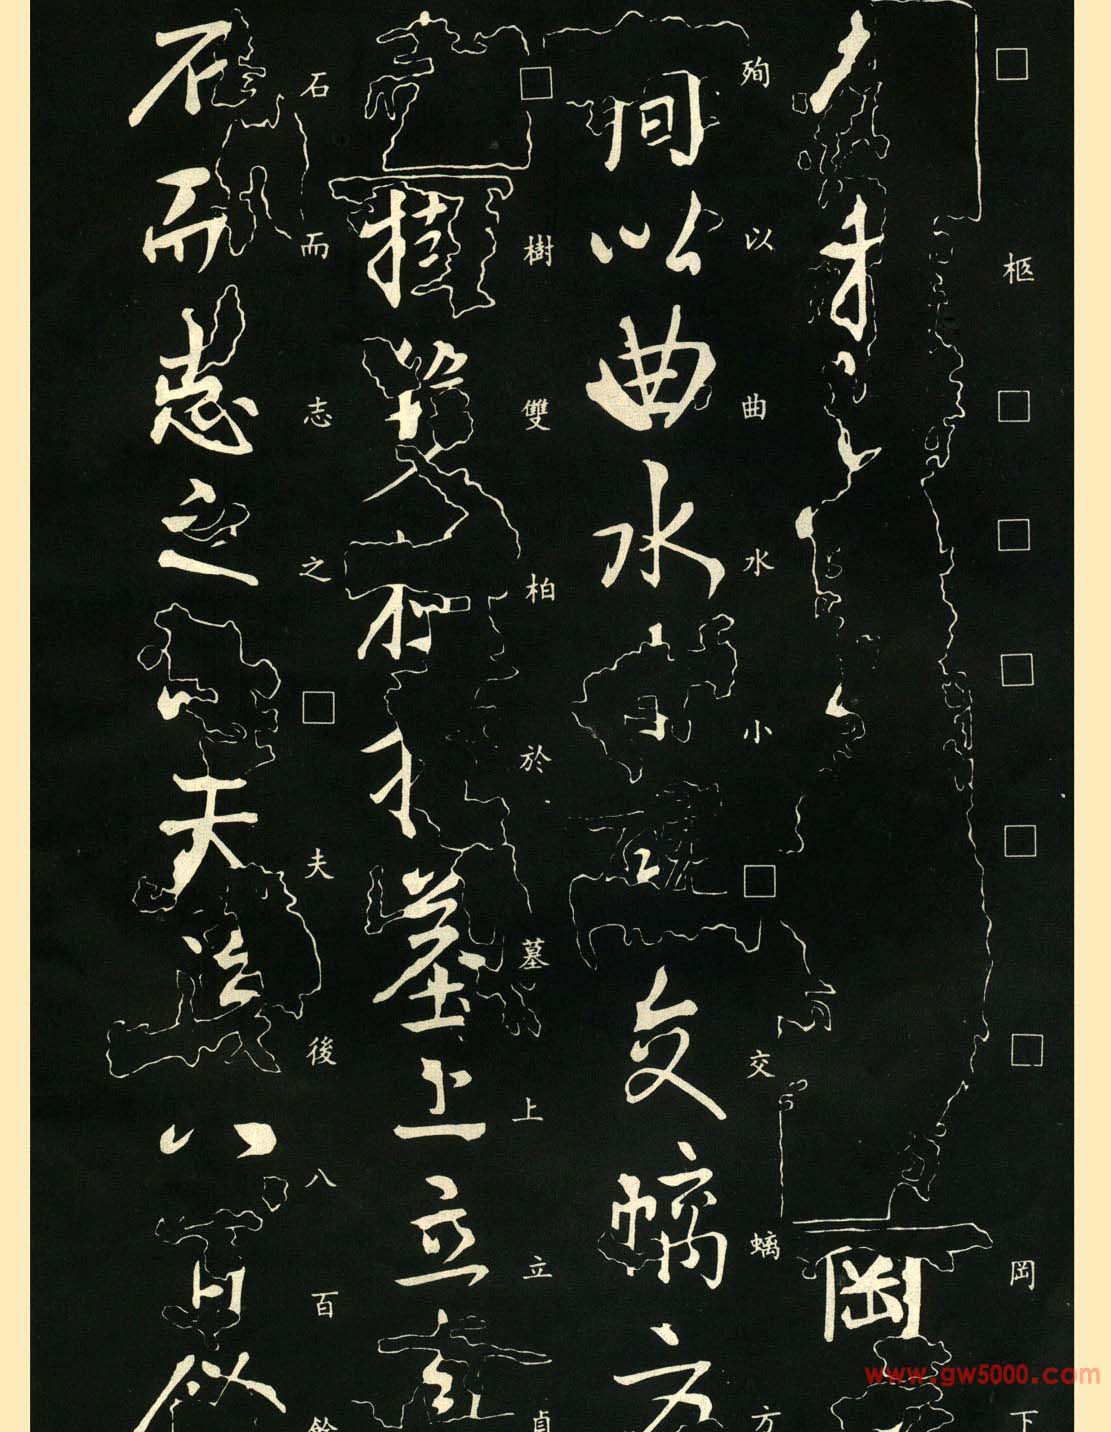 □柩□□□□□岡下
殉以曲水小□交螭方
□樹雙柏於墓上立貞
石而志之□夫後八百餘
www.gw5000.com